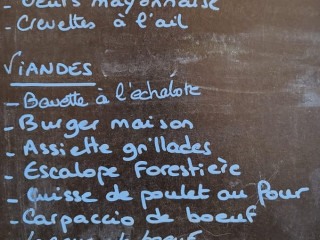 - Oeufs mayonnaise
- Crevettes à l'ail
VIANDES
- Bavette à l'echalote
- Burger maison
- Assiette grillades
- Escalope Forestière
- Cuisse de poulet au four
- Carpaccio de boeuf
de boeuf